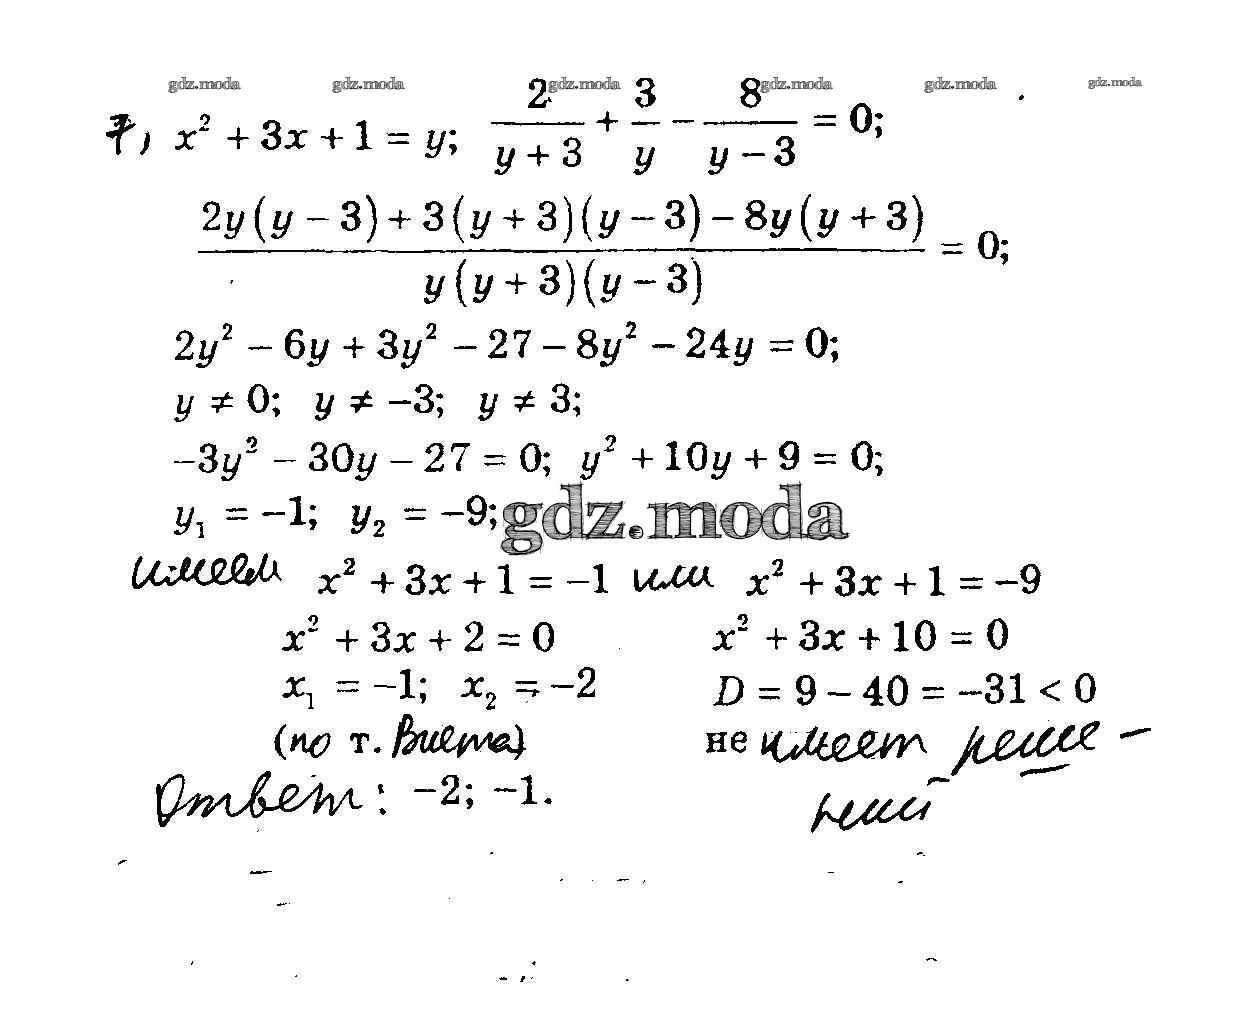 gdz.moda gdz.moda gdz.moda gdz.moda gdz.moda gdz.moda
7) x² + 3x + 1 = y; 2/(y + 3) + 3/y − 8/(y − 3) = 0;
(2y(y − 3) + 3(y + 3)(y − 3) − 8y(y + 3))/(y(y + 3)(y − 3)) = 0;
2y² − 6y + 3y² − 27 − 8y² − 24y = 0;
y ≠ 0; y ≠ −3; y ≠ 3;
−3y² − 30y − 27 = 0; y² + 10y + 9 = 0;
y₁ = −1; y₂ = −9;
gdz.moda
имеем x² + 3x + 1 = −1 или x² + 3x + 1 = −9
x² + 3x + 2 = 0 x² + 3x + 10 = 0
x₁ = −1; x₂ = −2 D = 9 − 40 = −31 < 0
(по т. Виета) не имеет реше-
Ответ: −2; −1. ний